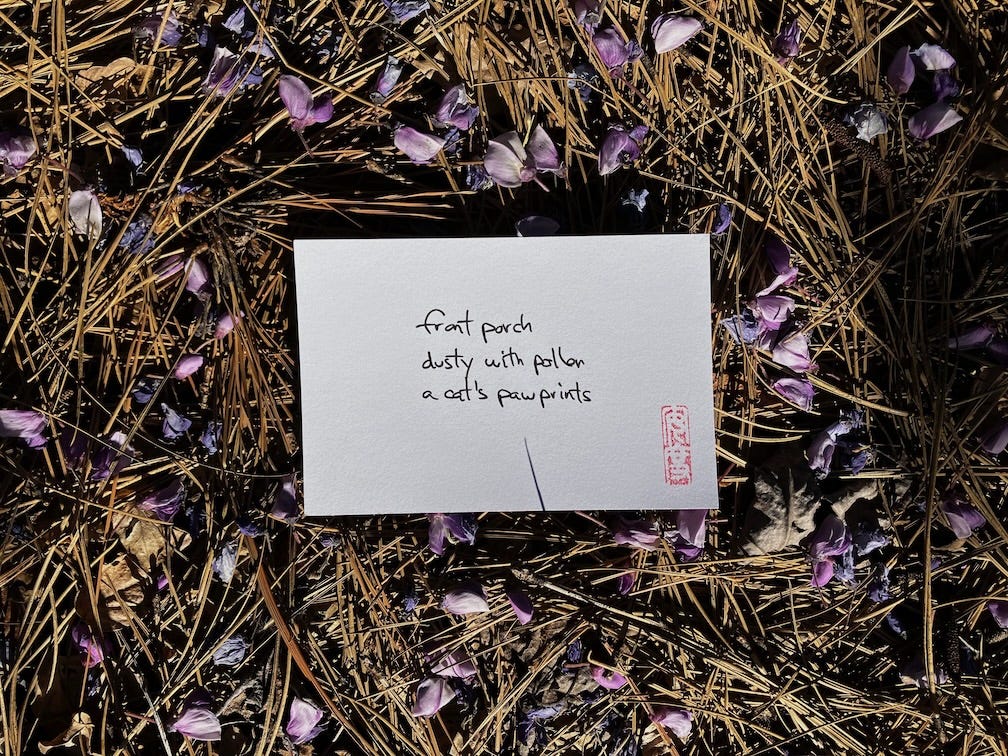 front porch
dusty with pollen
a cat's pawprints